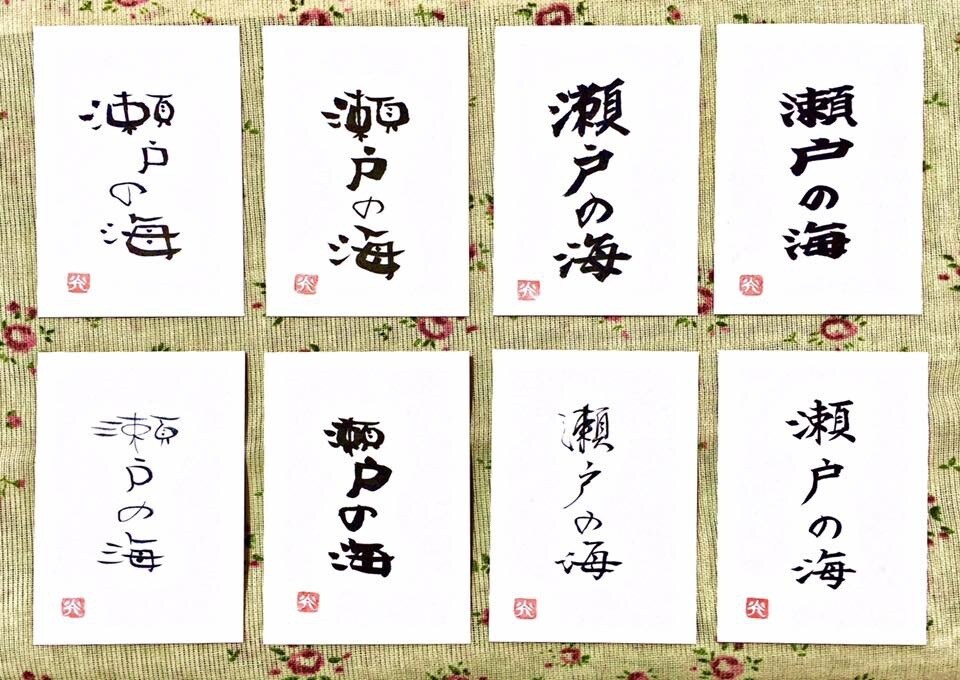 瀬戸の海
瀬戸の海
瀬戸の海
瀬戸の海
瀬戸の海
瀬戸の海
瀬戸の海
瀬戸の海